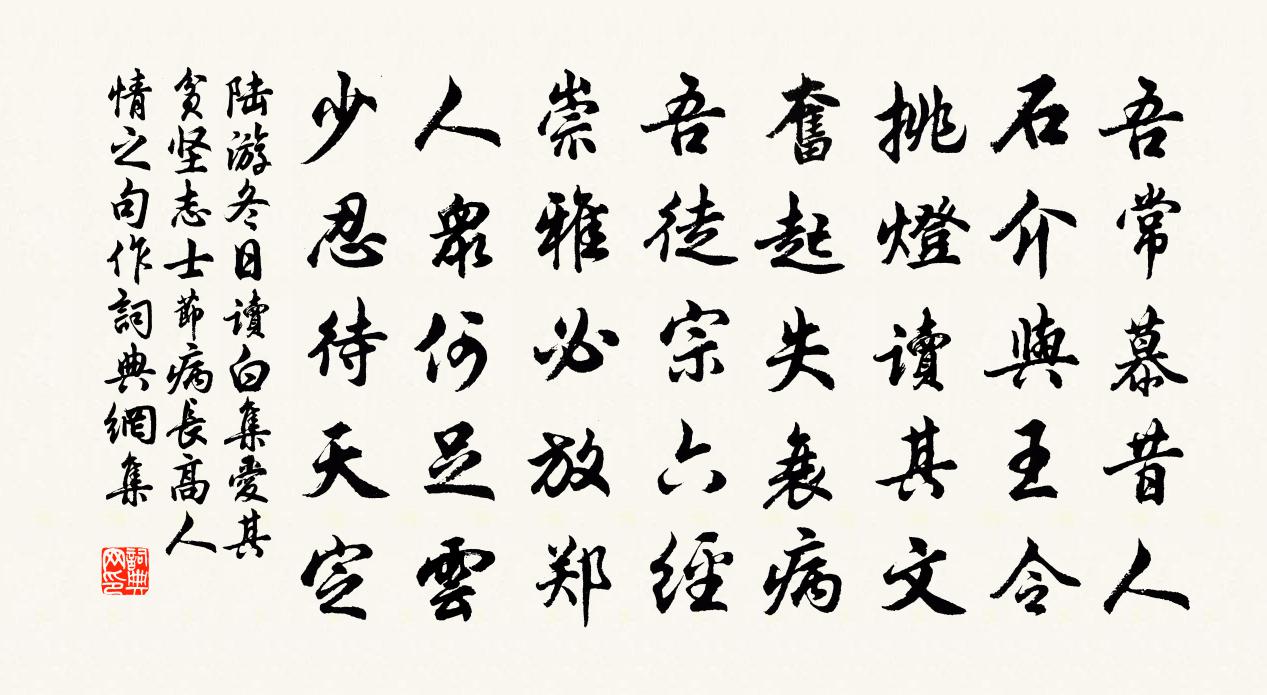 吾常慕昔人
石介與王令
挑燈讀其文
奮起失衰病
吾徒宗六經
崇雅必放郑
人衆何足雲
少忍待天定
陆游冬日讀白集愛其
貧坚志士節病長高人
情之句作詞典網集
詞典網印